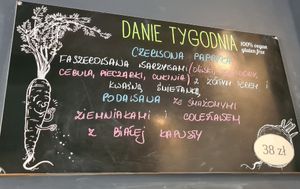 DANIE TYGODNIA
100% vegan
gluten free
CZERWONA PAPRYKA
FASZEROWANA WARZYWAMI
CEBULA, PIECZARKI, CUKINIA) Z ŻÓŁTYM I
KWAŚNĄ ŚMIETANKĄ
PODAWANA ZE SMAŻONYMI
ZIEMNIAKAMI I COLESŁAWEM
Z BIAŁEJ KAPUSTY
38 zł